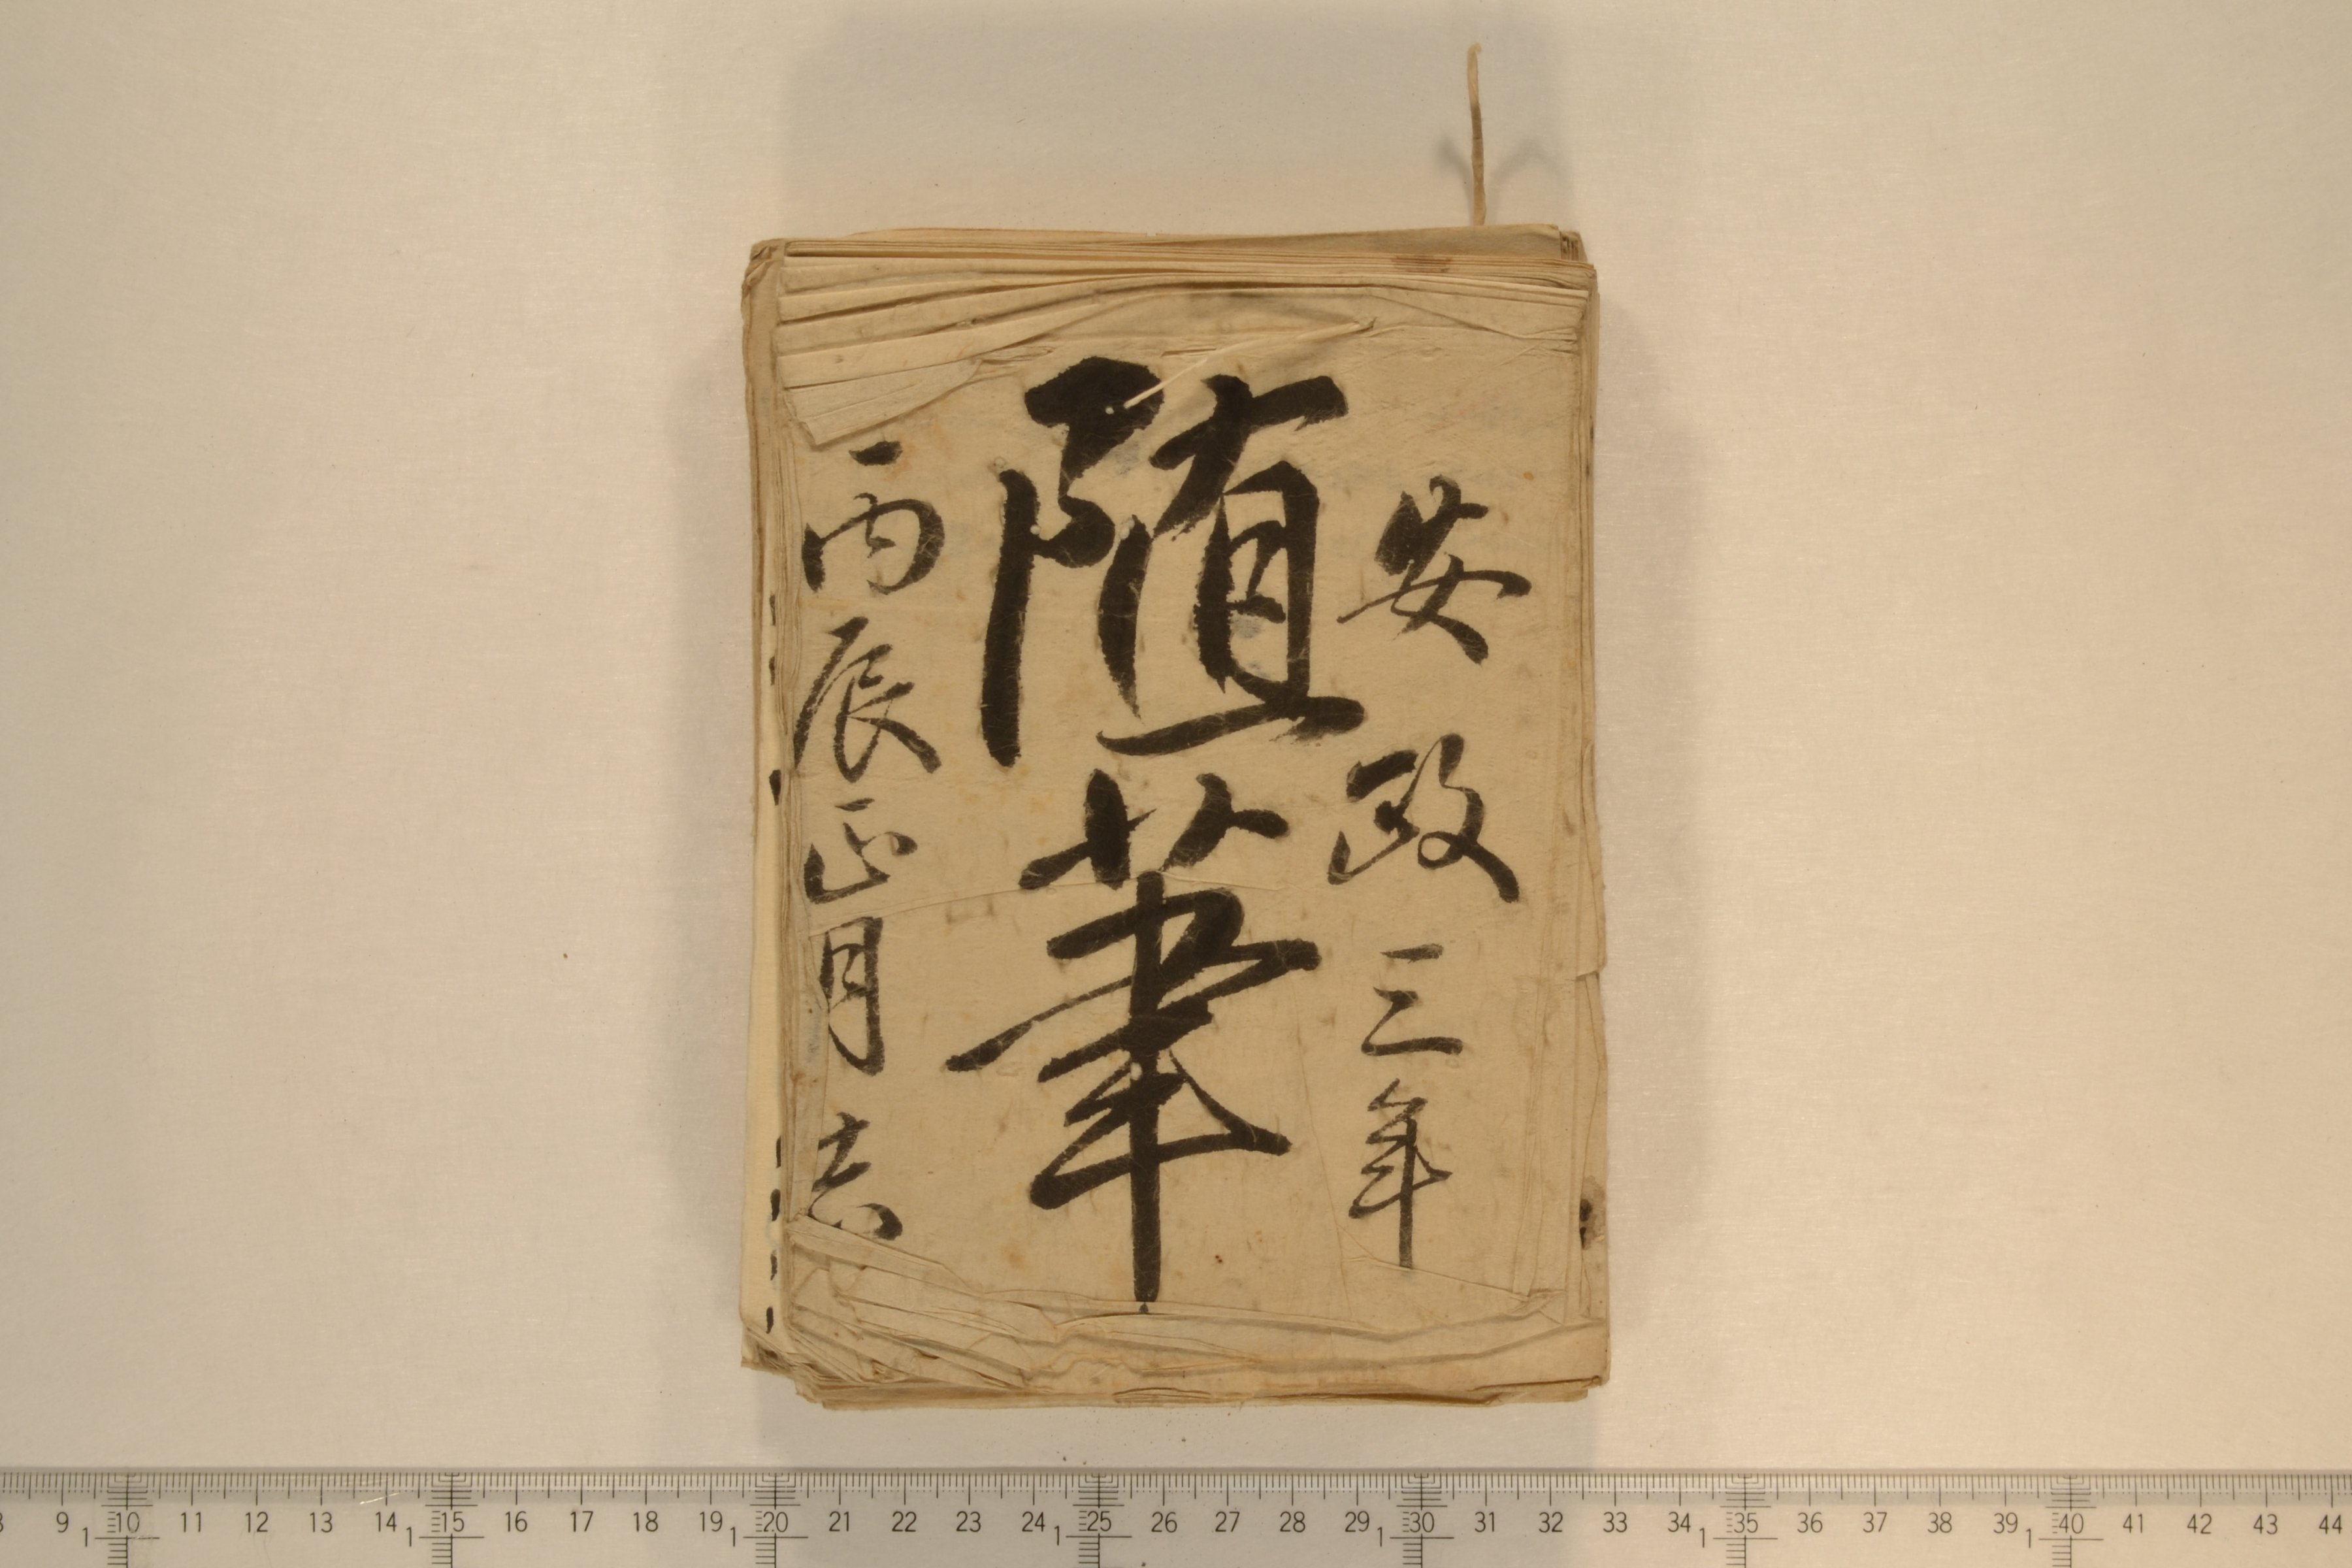 安政三年
随筆
丙辰正月志
8 9 10 11 12 13 14 15 16 17 18 19 20 21 22 23 24 25 26 27 28 29 30 31 32 33 34 35 36 37 38 39 40 41 42 43 44
1 1 1 1 1 1 1